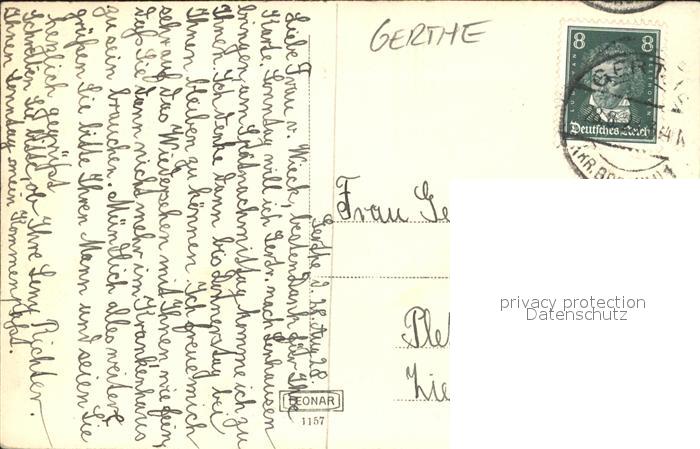 Gerthe d. 28. Aug 28.
Liebe Frau v. Wieck, besten Dank für Ihre
Karte. Sonntag will ich Gertr. nach
bringen, am Spätnachmittag komme ich zu
Ihnen. Ich denke dann bis Donnerstag bei
Ihnen bleiben zu können. Ich freue mich
sehr auf das Wiedersehen mit Ihnen, wie fein,
daß Sie dann nicht mehr im Krankenhaus
zu sein brauchen. Mündlich alles weitere,
grüßen Sie bitte Ihren Mann und seien Sie
herzlich gegrüßt Ihre Leny Richter.
Schreiben Sie bitte, ob
Ihnen Sonntag mein Kommen paßt.
GERTHE
8 8
LUDWIG BEETHOVEN
Deutsches Reich
GERT
Frau Ge
Ple
Zie
LEONAR
1157
privacy protection
Datenschutz